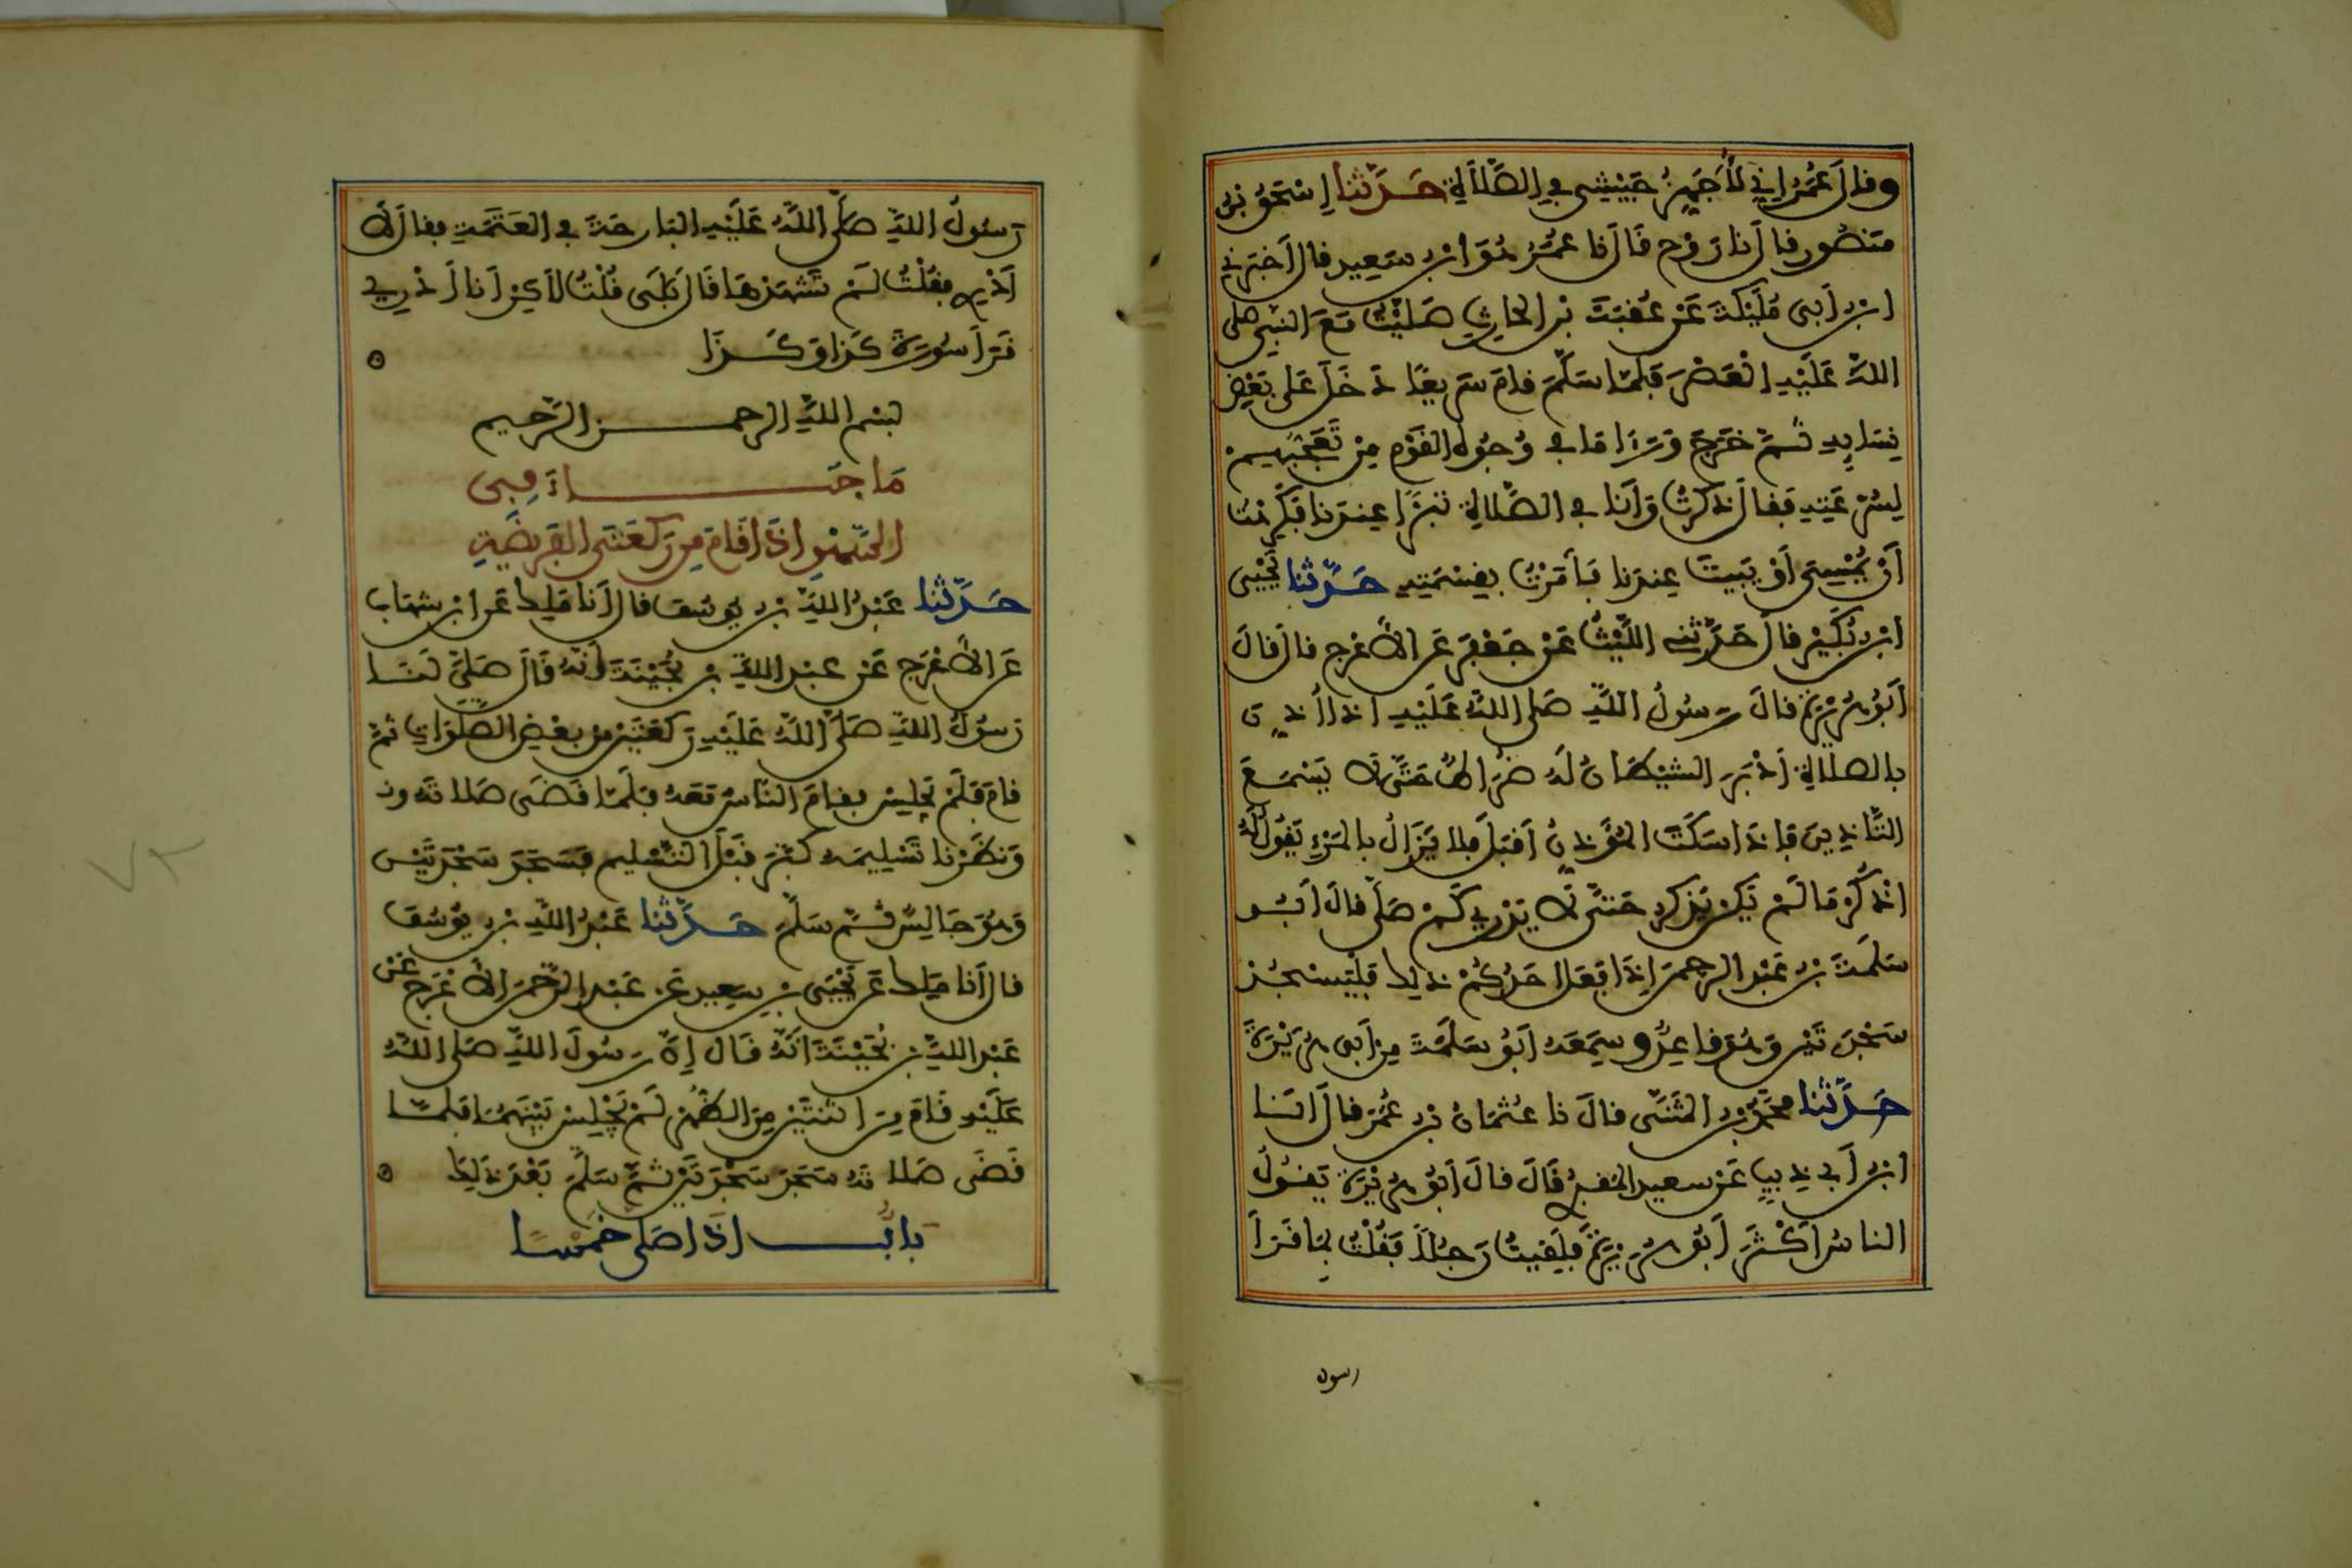 وقال عمر اني لأجهز جيشي في الصلاة حدثنا إسحق بن
منصور قال نا روح قال نا عمر هو ابن سعيد قال أخبرني
ابن أبي مليكة عن عقبة بن الحارث صليت مع النبي صلى
الله عليه العصر فلما سلم قام سريعا دخل على بعض
نسايه ثم خرج ورءا ما في وجوه القوم من تعجبهم
لسرعته فقال ذكرت وأنا في الصلاة تبرا عندنا فكرهت
أن يمسي أو يبيت عندنا فأمرت بقسمته حدثنا يحيى
ابن بكير قال حدثني الليث عن جعفر عن الأعرج قال قال
أبو هريرة قال رسول الله صلى الله عليه اذا أذن
بالصلاة أدبر الشيطان له ضراط حتى لا يسمع
التاذين فإذا سكت المؤذن أقبل فلا يزال بالمرء يقول له
اذكر ما لم يكن يذكر حتى لا يدري كم صلى قال أبو
سلمة بن عبد الرحمن إذا فعل احدكم ذلك فليسجد
سجدتين وهو قاعد وسمعه أبو سلمة من أبي هريرة
حدثنا محمد بن المثنى قال نا عثمان بن عمر قال انا
ابن أبي ذيب عن سعيد المقبري قال قال أبو هريرة يقول
الناس أكثر أبو هريرة فلقيت رجلا فقلت بما قرأ
رسول
رسول الله صلى الله عليه البارحة في العتمة فقال لا
أدري فقلت لم تشهدها قال بلى قلت لاكن أنا أدري
قرأ سورة كذا وكذا
بسم الله الرحمن الرحيم
ما جاء في
السهو اذا قام من ركعتي الفريضة
حدثنا عبد الله بن يوسف قال أنا ملك عن ابن شهاب
عن الأعرج عن عبد الله بن بحينة أنه قال صلى لنا
رسول الله صلى الله عليه ركعتين من بعض الصلوات ثم
قام فلم يجلس فقام الناس معه فلما قضى صلاته و
ونظرنا تسليمه كبر قبل التسليم فسجد سجدتين
وهو جالس ثم سلم حدثنا عبد الله بن يوسف
قال أنا ملك عن يحيى بن سعيد عن عبد الرحمن الأعرج عن
عبد الله بن بحينة أنه قال إن رسول الله صلى الله
عليه قام من اثنتين من الظهر لم يجلس بينهما فلما
قضى صلاته سجد سجدتين ثم سلم بعد ذلك
باب اذا صلى خمسا
٧٢